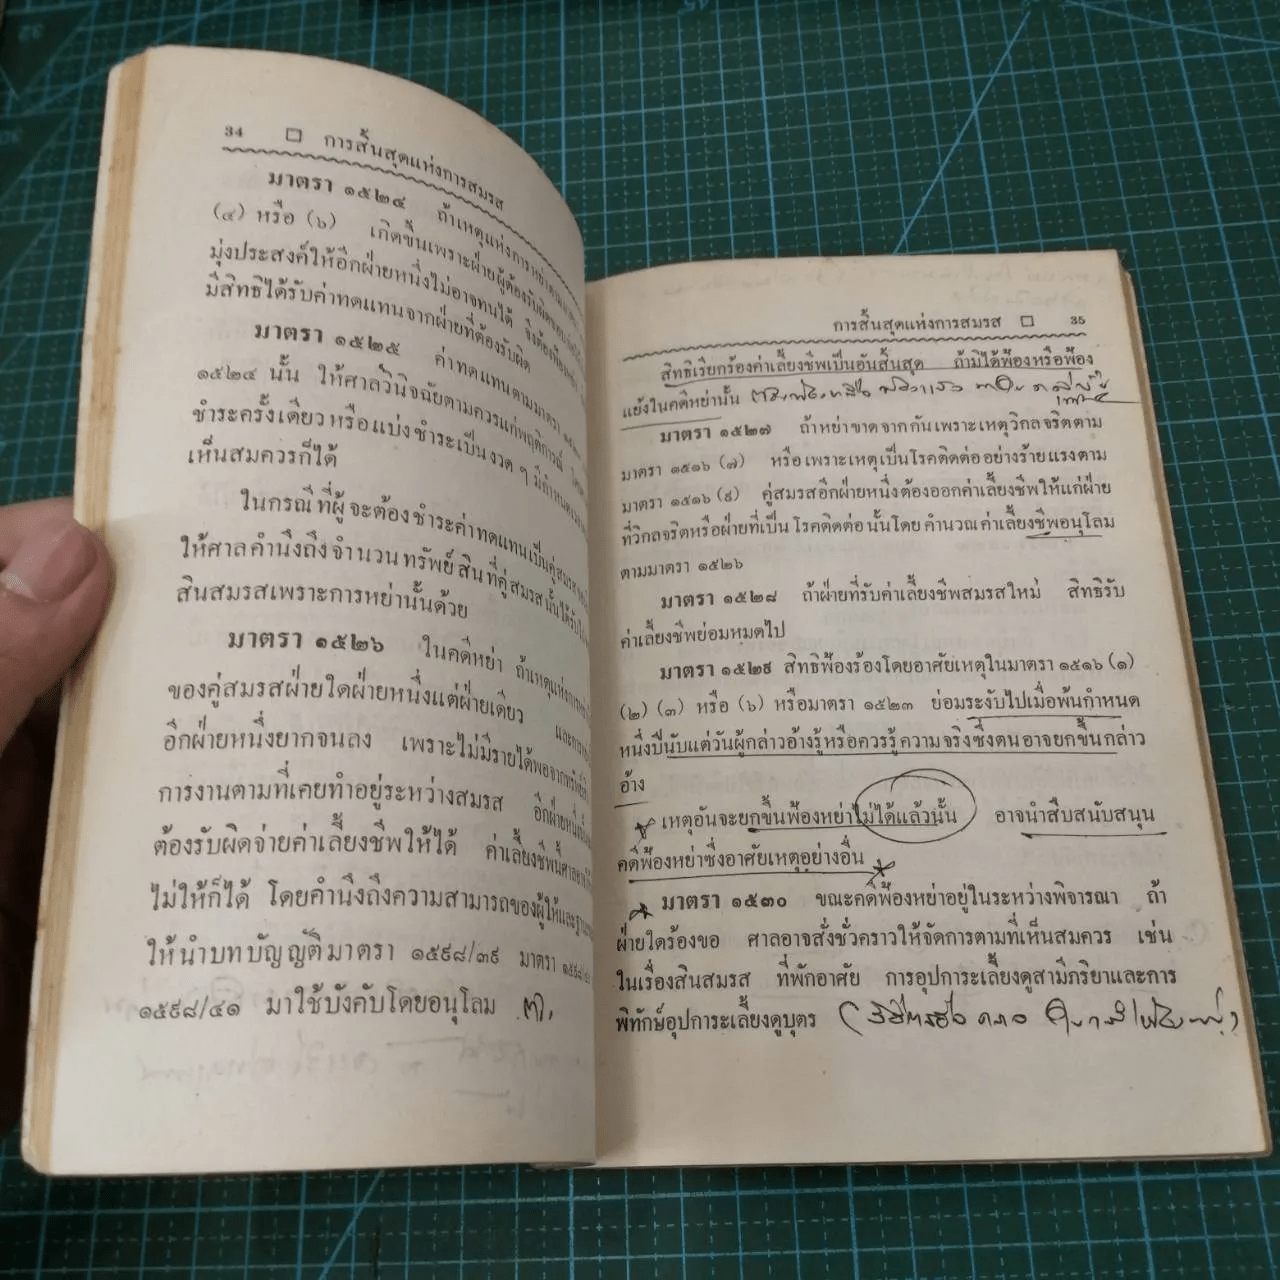 34 □ การสิ้นสุดแห่งการสมรส
มาตรา ๑๕๒๔ ถ้าเหตุแห่งการหย่าตามมาตรา
(๔) หรือ (๖) เกิดขึ้นเพราะฝ่ายผู้ต้องรับผิดชอบ
มุ่งประสงค์ให้อีกฝ่ายหนึ่งไม่อาจทนได้ จึงต้องฟ้องหย่า
มีสิทธิได้รับค่าทดแทนจากฝ่ายที่ต้องรับผิด
มาตรา ๑๕๒๕ ค่าทดแทนตามมาตรา
๑๕๒๔ นั้น ให้ศาลวินิจฉัยตามควรแก่พฤติการณ์
ชำระครั้งเดียวหรือแบ่งชำระเป็นงวด ๆ มีกำหนดเวลา
เห็นสมควรก็ได้
ในกรณีที่ผู้จะต้องชำระค่าทดแทนเป็นคู่สมรส
ให้ศาลคำนึงถึงจำนวนทรัพย์สินที่คู่สมรสนั้นได้รับไป
สินสมรสเพราะการหย่านั้นด้วย
มาตรา ๑๕๒๖ ในคดีหย่า ถ้าเหตุแห่งการหย่า
ของคู่สมรสฝ่ายใดฝ่ายหนึ่งแต่ฝ่ายเดียว และการ
อีกฝ่ายหนึ่งยากจนลง เพราะไม่มีรายได้พอจากทรัพย์สิน
การงานตามที่เคยทำอยู่ระหว่างสมรส อีกฝ่ายหนึ่ง
ต้องรับผิดจ่ายค่าเลี้ยงชีพให้ได้ ค่าเลี้ยงชีพนี้ศาลอาจ
ไม่ให้ก็ได้ โดยคำนึงถึงความสามารถของผู้ให้และฐานะ
ให้นำบทบัญญัติมาตรา ๑๕๙๘/๓๙ มาตรา
๑๕๙๘/๔๑ มาใช้บังคับโดยอนุโลม
การสิ้นสุดแห่งการสมรส □ 35
สิทธิเรียกร้องค่าเลี้ยงชีพเป็นอันสิ้นสุด ถ้ามิได้ฟ้องหรือฟ้อง
แย้งในคดีหย่านั้น
มาตรา ๑๕๒๗ ถ้าหย่าขาดจากกันเพราะเหตุวิกลจริตตาม
มาตรา ๑๕๑๖ (๗) หรือเพราะเหตุเป็นโรคติดต่ออย่างร้ายแรงตาม
มาตรา ๑๕๑๖ (๙) คู่สมรสอีกฝ่ายหนึ่งต้องออกค่าเลี้ยงชีพให้แก่ฝ่าย
ที่วิกลจริตหรือฝ่ายที่เป็นโรคติดต่อนั้นโดยคำนวณค่าเลี้ยงชีพอนุโลม
ตามมาตรา ๑๕๒๖
มาตรา ๑๕๒๘ ถ้าฝ่ายที่รับค่าเลี้ยงชีพสมรสใหม่ สิทธิรับ
ค่าเลี้ยงชีพย่อมหมดไป
มาตรา ๑๕๒๙ สิทธิฟ้องร้องโดยอาศัยเหตุในมาตรา ๑๕๑๖ (๑)
(๒) (๓) หรือ (๖) หรือมาตรา ๑๕๒๓ ย่อมระงับไปเมื่อพ้นกำหนด
หนึ่งปีนับแต่วันผู้กล่าวอ้างรู้หรือควรรู้ความจริงซึ่งตนอาจยกขึ้นกล่าว
อ้าง
เหตุอันจะยกขึ้นฟ้องหย่าไม่ได้แล้วนั้น อาจนำสืบสนับสนุน
คดีฟ้องหย่าซึ่งอาศัยเหตุอย่างอื่น
มาตรา ๑๕๓๐ ขณะคดีฟ้องหย่าอยู่ในระหว่างพิจารณา ถ้า
ฝ่ายใดร้องขอ ศาลอาจสั่งชั่วคราวให้จัดการตามที่เห็นสมควร เช่น
ในเรื่องสินสมรส ที่พักอาศัย การอุปการะเลี้ยงดูสามีภริยาและการ
พิทักษ์อุปการะเลี้ยงดูบุตร